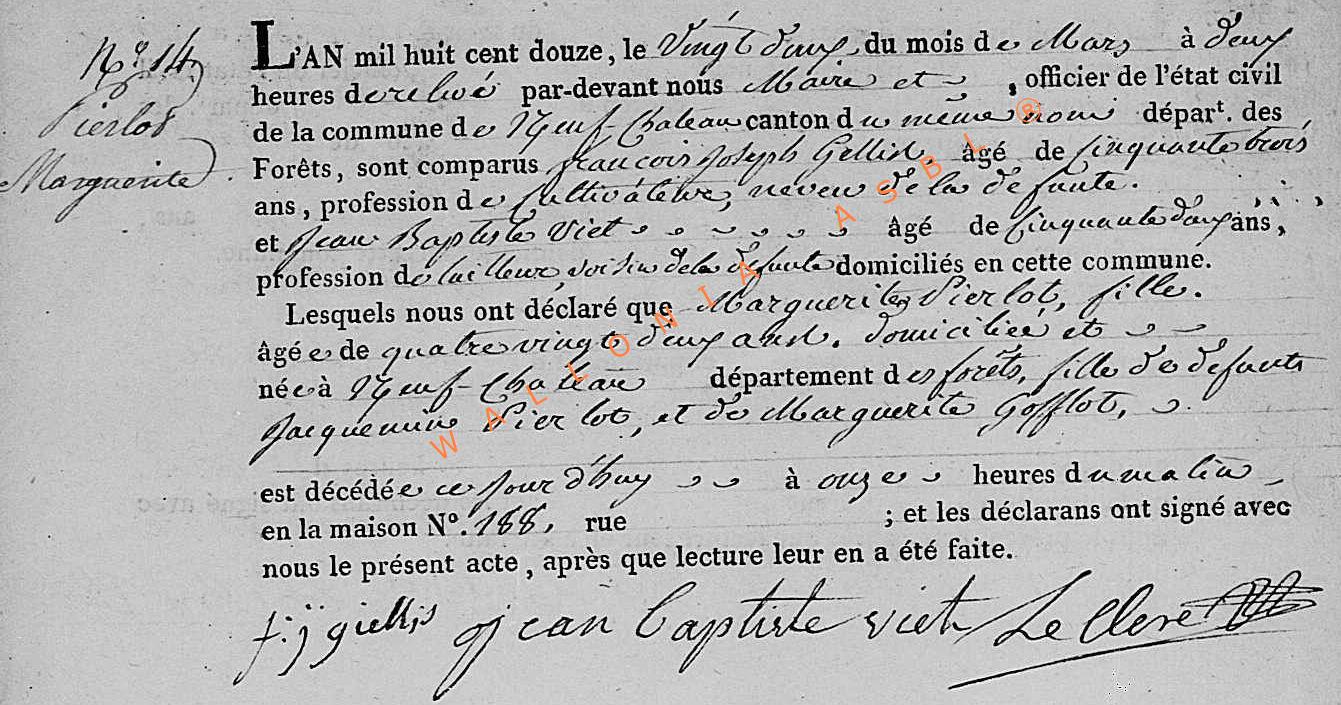 N.° 14
Pierlot
Marguerite.
L'AN mil huit cent douze, le Vingt deux, du mois de Mars à deux
heures de relevé par-devant nous Maire et , officier de l'état civil
de la commune de Neuf-Chateau canton du même nom départ. des
Forêts, sont comparus francois Joseph Gellin, âgé de Cinquante trois
ans, profession de Cultivateur, neveu de la defunte.
et Jean Baptiste Viet âgé de Cinquante deux ans,
profession de tailleur, voisin de la defunte domiciliés en cette commune.
Lesquels nous ont déclaré que Marguerite Pierlot, fille.
âgée de quatre vingt deux ans. domiciliée et
née à Neuf-Chateau département des forêts, fille de defunts
Jacquemin Pierlot, et de Marguerite Gofflot,
est décédée ce jour d'huy à onze heures du matin
en la maison N°. 188, rue ; et les déclarans ont signé avec
nous le présent acte, après que lecture leur en a été faite.
f: j giellis jean baptiste viet Le Clere
WALLONIA ASBL ®